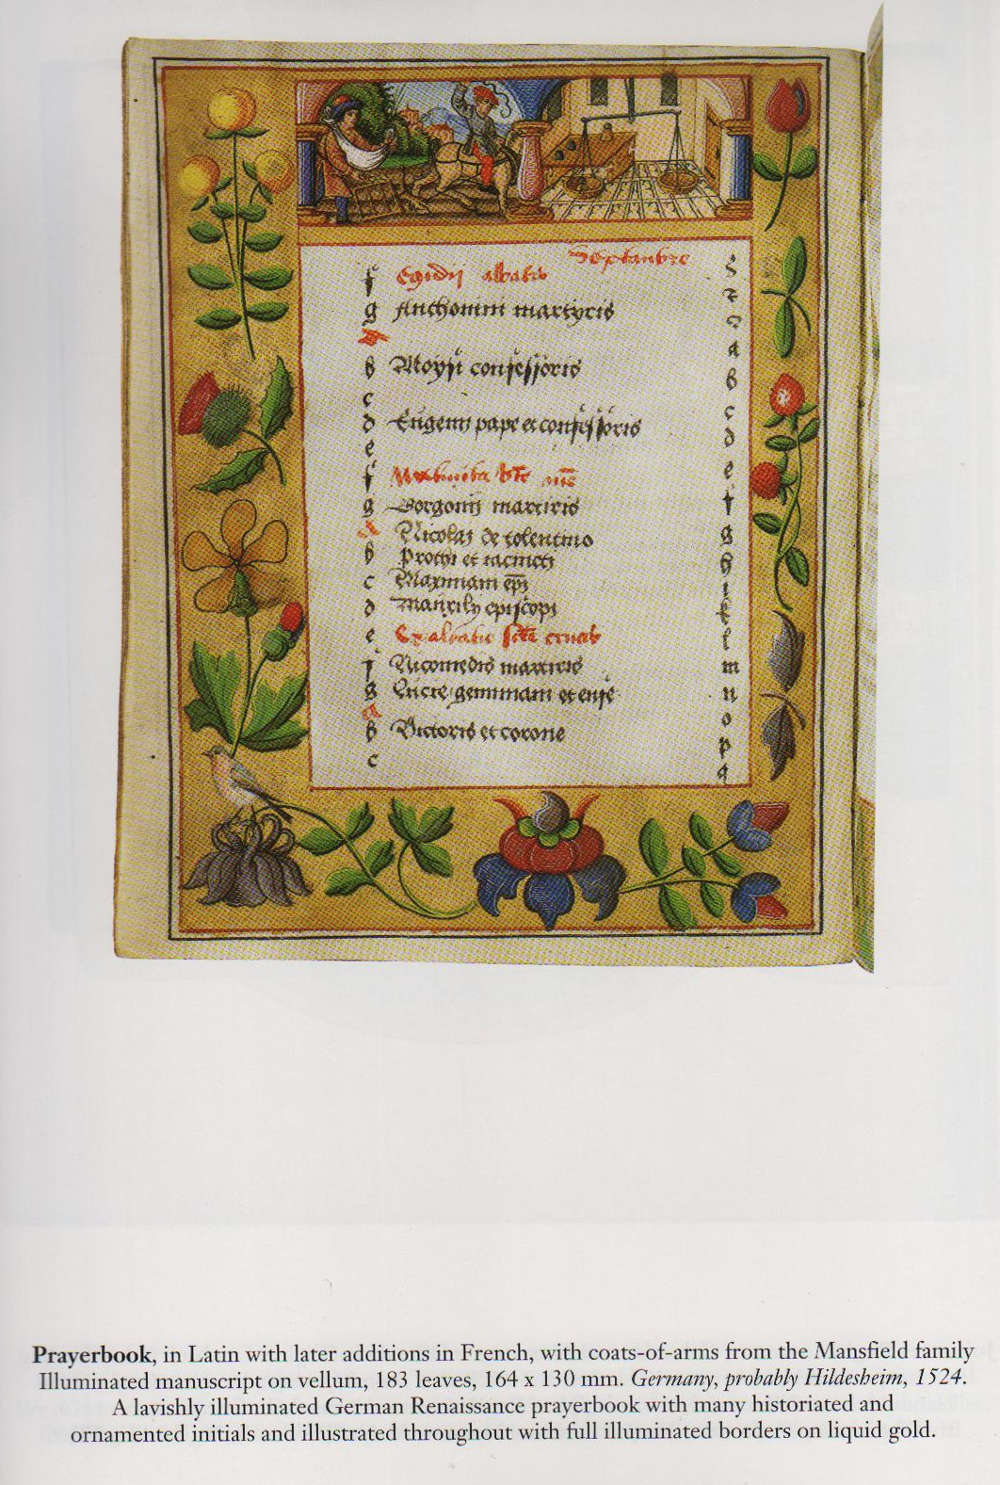 Septembre
f Egidij abbatis
g Anthonini martyris
A
b Moysi confessoris
c
d Eugenij pape et confessoris
e
f
g Gorgonij martiris
A Nicolai de tolentino
b Prothi et iacincti
c Maximiani epi
d Maurilij episcopi
e Exaltatio scte crucis
f Nicomedis martiris
g Lucie geminiani et eufe
A
b Victoris et corone
c
a
b
c
d
e
f
g
h
i
k
l
m
n
o
p
q
Prayerbook, in Latin with later additions in French, with coats-of-arms from the Mansfield family
Illuminated manuscript on vellum, 183 leaves, 164 x 130 mm. Germany, probably Hildesheim, 1524.
A lavishly illuminated German Renaissance prayerbook with many historiated and
ornamented initials and illustrated throughout with full illuminated borders on liquid gold.